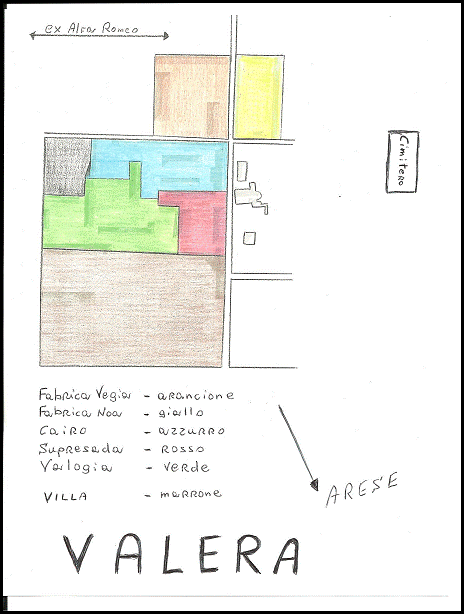 ex Alfa Romeo
Cimitero
Fabrica Vegia - arancione
Fabrica Noa - giallo
Cairo - azzurro
Supresada - rosso
Valogia - verde
VILLA - marrone
ARESE
VALERA